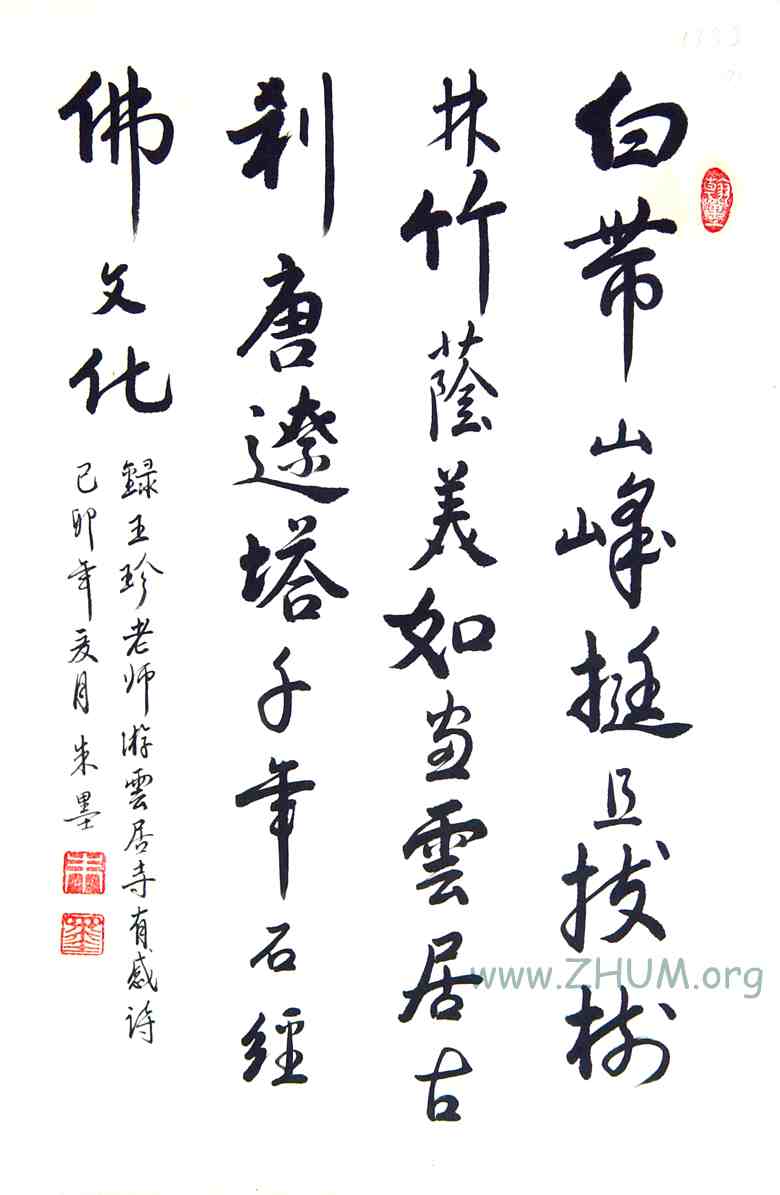 白帶山峰挺且拔樹
林竹蔭美如画雲居古
刹唐遼塔千年石經
佛文化
録王珍老师游雲居寺有感詩
己卯年夏月朱墨
朱
墨
www.ZHUM.org